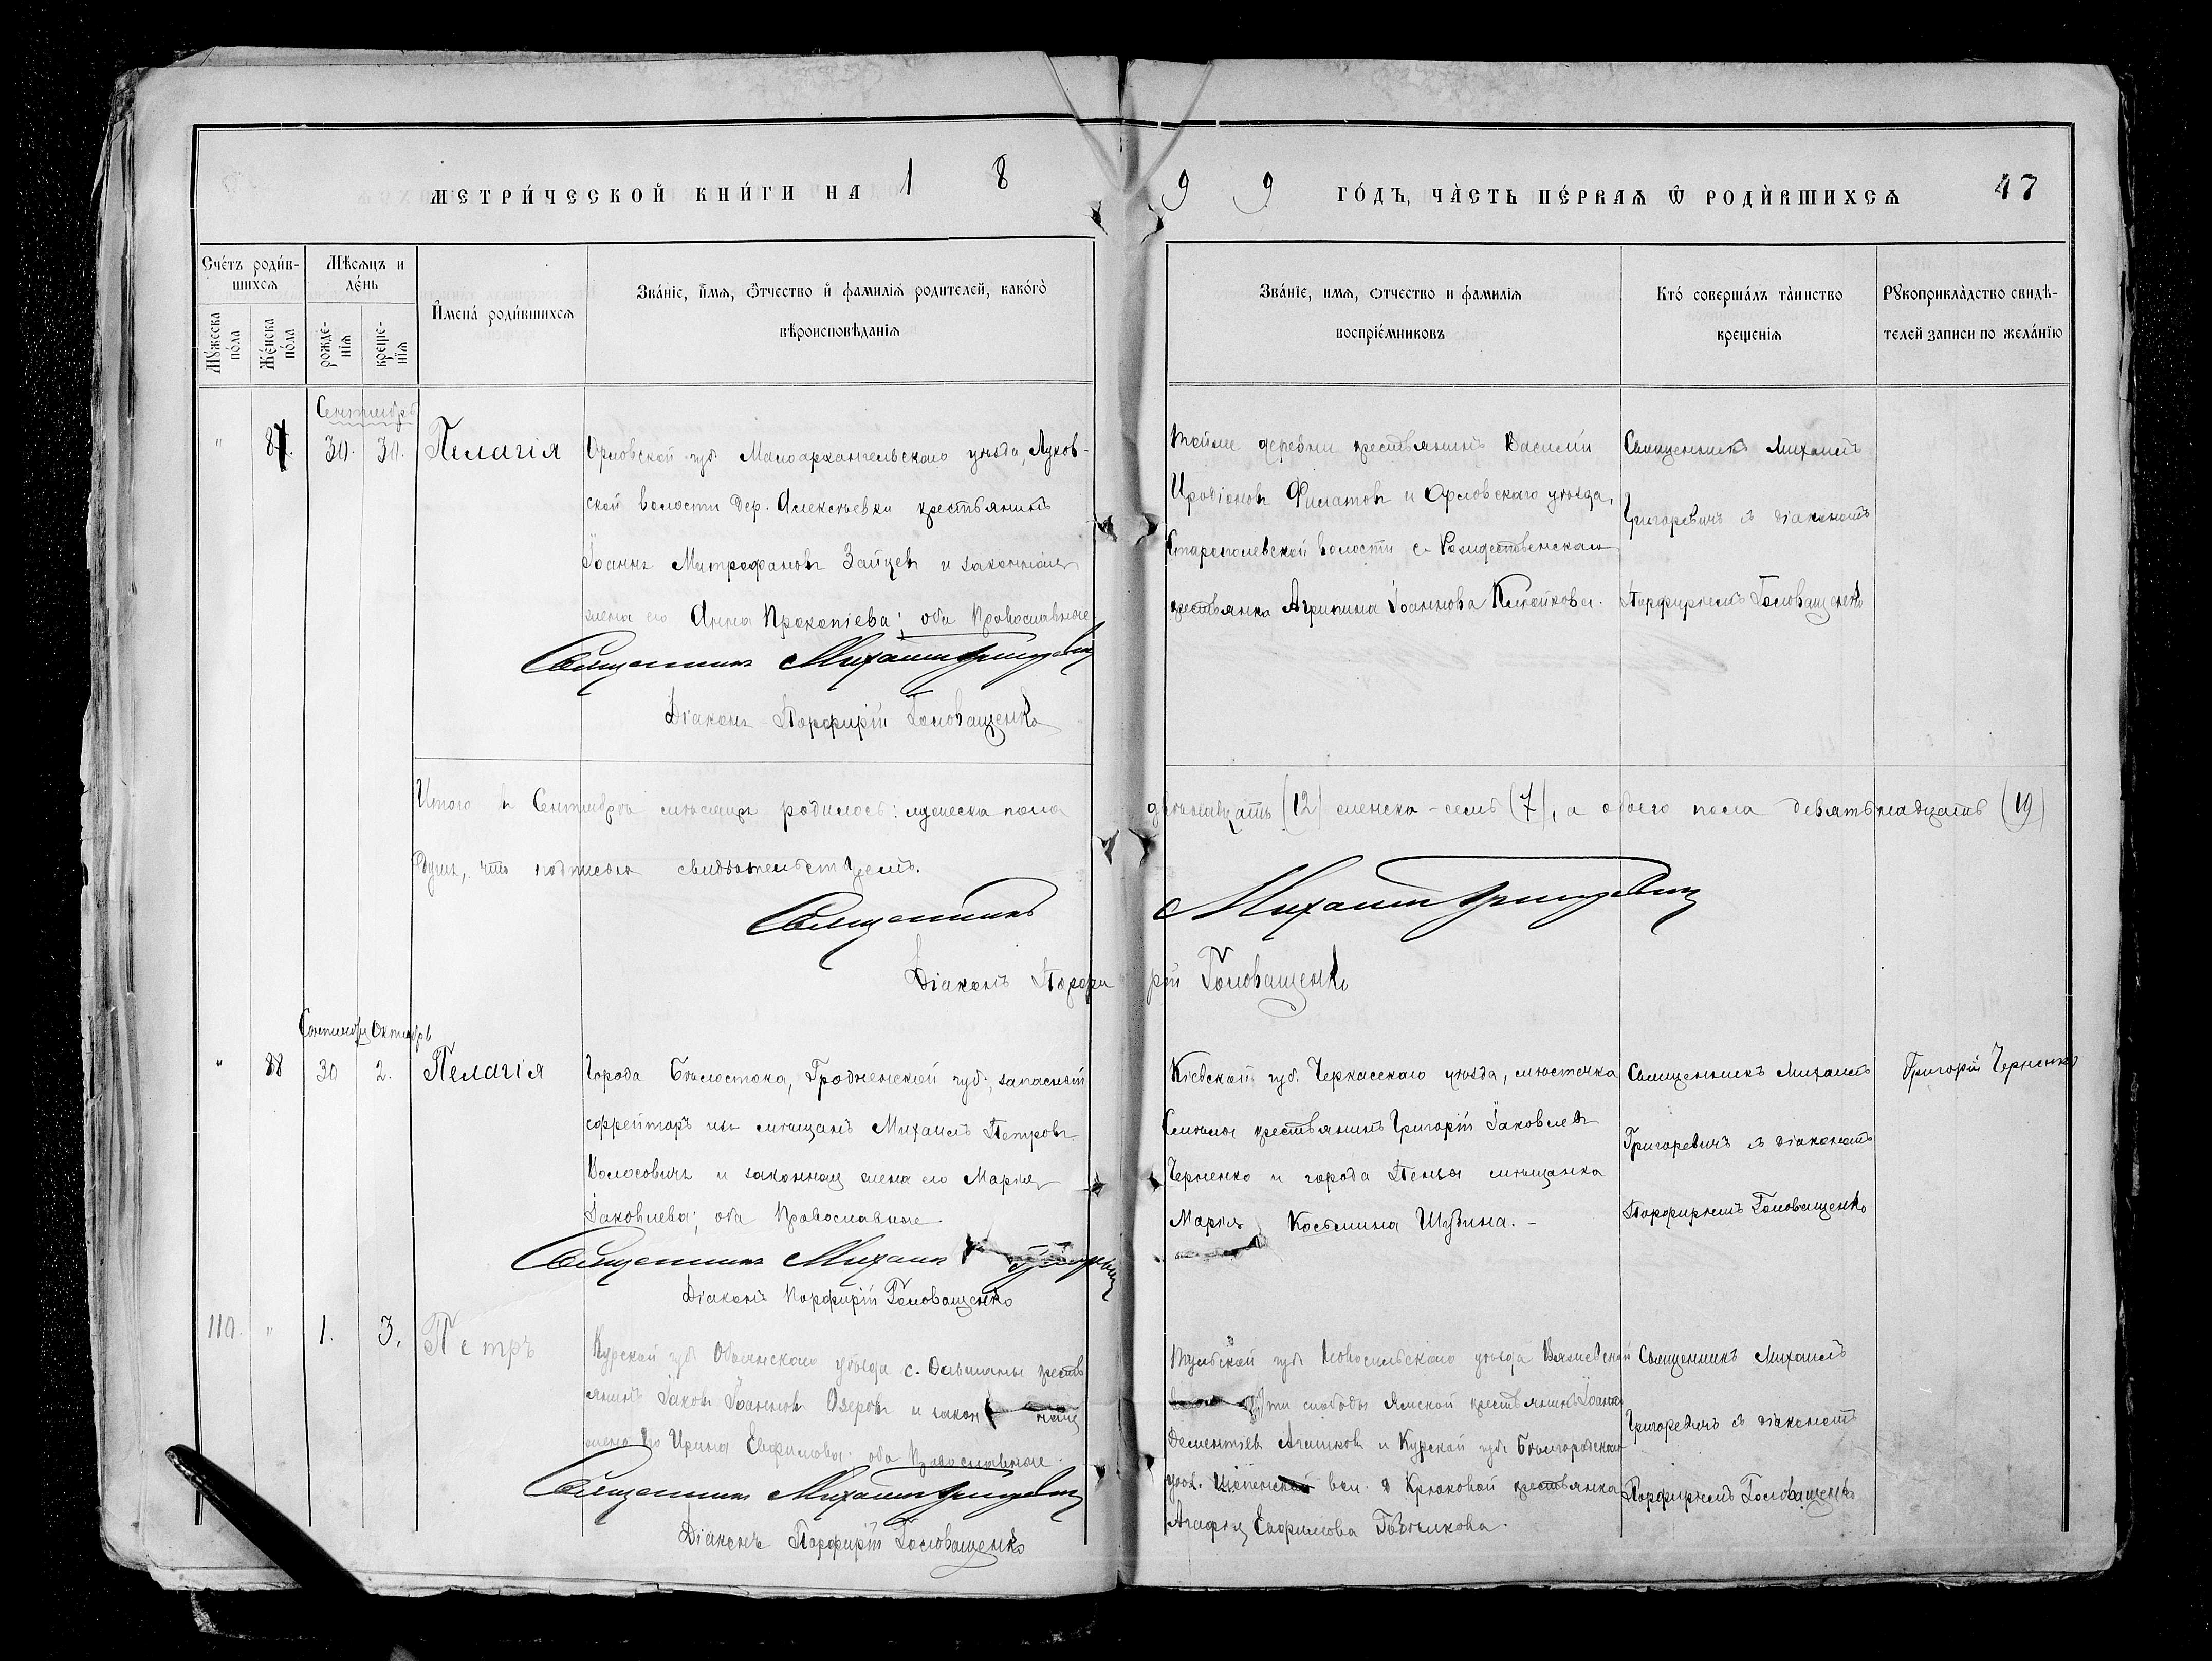 МЕТРИ́ЧЕСКОЙ КНИ́ГИ НА 1 8 9 9 ГО́ДЪ, ЧА̀СТЬ ПЕ́РВАѦ Ѿ РОДИ́ВШИХСѦ 47
Сче́тъ роди́в-
шихсѧ
Мѣсѧцъ и
де́нь
Мꙋжеска
по́ла
Же́нска
по́ла
рожде-
нїѧ
креще-
нїѧ
И҆мена̀ роди́вшихсѧ
Зва́нїе, и҆́мѧ, ѻ҆́тчество и҆ фамилїѧ родителей, како́гѡ
вѣроисповѣданїѧ
Зва́нїе, имѧ, ѻтчество и фамилїѧ
воспрїе́мниковъ
Кто́ соверша́лъ та̀инство
крещенїѧ
Рꙋкоприкла̀дство свидѣ-
телей записи по жела́нїю
Сентябрь
" 87. 30. 30. Пелагія
Орловской губ Малоархангельскаго уѣзда, Луков-
ской волости дер. Алексѣевки крестьянинъ
Іоаннъ Митрофановъ Зайцевъ и законная
жена его Анна Прокопіева; оба Православные
Священникъ Михаилъ Григоревичъ
Діаконъ Порфирій Головащенко
Тойже деревни крестьянинъ Василій
Иродіоновъ Филатовъ и Орловскаго уѣзда,
волости с. Рождественскаго
крестьянка Агрипина Іоаннова
Священникъ Михаилъ
Григоревичъ съ діакономъ
Порфиріемъ Головащенко
Итого въ Сентябрѣ мѣсяцѣ родилось: мужеска пола двѣнадцать (12) женска - семь (7), а обоего пола девятьнадцать (19)
душъ, что подписью свидѣтельствуемъ.
Священникъ Михаилъ Григоревичъ
Діаконъ Порфирій Головащенко
Сентябрь Октябрь
" 88 30 2. Пелагія
Города Бѣлостока, Гродненской губ., запасный
ефрейторъ изъ мѣщанъ Михаилъ Петровъ
Волосовичъ и законная жена его Марія
Іаковлева; оба Православные
Священникъ Михаилъ Григоревичъ
Діаконъ Порфирій Головащенко
Кіевской губ. Черкасскаго уѣзда, мѣстечка
Смѣлы крестьянинъ Григорій Іаковлевъ
Черненко и города Пензы мѣщанка
Марія Косьмина Шубина. -
Священникъ Михаилъ
Григоревичъ съ діакономъ
Порфиріемъ Головащенко
Григорій Черненко
110. " 1. 3. Петръ
Курской губ Обоянскаго уѣзда с. Ольшаны кресть
янинъ Іаковъ Іоанновъ Озеровъ и законная
жена его Ирина Евфимова; оба Православные.
Священникъ Михаилъ Григоревичъ
Діаконъ Порфирій Головащенко
Тульской губ Новосильскаго уѣзда
слободы Ямской крестьянинъ Іоаннъ
Дементіевъ и Курской губ Бѣлгородскаго
вол. д Крюковой крестьянка
Агафія Евфимова
Священникъ Михаилъ
Григоревичъ съ діакономъ
Порфиріемъ Головащенко